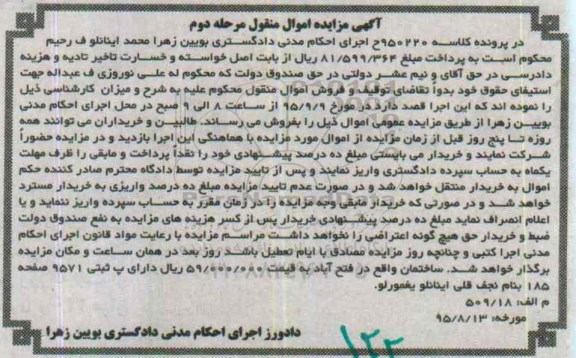 آگهی مزایده اموال منقول مرحله دوم
در پرونده کلاسه ۹۵۰۲۲۰ح اجرای احکام مدنی دادگستری بویین زهرا محمد اینانلو ف رحیم
محکوم است به پرداخت مبلغ ۸۱/۵۹۹/۳۶۴ ریال از بابت اصل خواسته و خسارت تاخیر تادیه و هزینه
دادرسی در حق آقای و نیم عشر دولتی در حق صندوق دولت که محکوم له علی نوروزی ف عبداله جهت
استیفای حقوق خود بدواً تقاضای توقیف و فروش اموال منقول محکوم علیه به شرح و میزان کارشناسی ذیل
را نموده اند که این اجرا قصد دارند در مورخ ۹۵/۹/۹ از ساعت ۸ الی ۹ صبح در محل اجرای احکام مدنی
بویین زهرا از طریق مزایده عمومی اموال ذیل را بفروش می رساند طالبین و خریداران می توانند همه
روزه تا پنج روز قبل از زمان مزایده از اموال مورد مزایده با هماهنگی این اجرا بازدید و در مزایده حضوراً
شرکت نمایند و خریدار می بایستی مبلغ ده درصد پیشنهادی خود را نقداً پرداخت و مابقی را ظرف مهلت
یکماه به حساب سپرده دادگستری واریز نمایند و پس از تایید مزایده توسط دادگاه محترم صادر کننده حکم
اموال به خریدار منتقل خواهد شد و در صورت عدم تایید مزایده مبلغ ده درصد واریزی به خریدار مسترد
خواهد شد و در صورتی که خریدار مابقی وجه مزایده را در زمان مقرر به حساب سپرده واریز ننماید و یا
اعلام انصراف نماید مبلغ ده درصد پیشنهادی خریدار پس از کسر هزینه های مزایده به نفع صندوق دولت
ضبط و خریدار حق هیچ گونه اعتراضی را نخواهد داشت مراسم مزایده با رعایت مواد قانون اجرای احکام
مدنی اجرا کتبی و چنانچه روز مزایده مصادف با ایام تعطیل باشد روز بعد در همان ساعت و مکان مزایده
برگذار خواهد شد. ساختمان واقع در فتح آباد به قیمت ۵۹/۰۰۰/۰۰۰ ریال دارای پ ثبتی ۹۵۷۱ صفحه
۱۸۵ بنام نجف قلی اینانلو یغمورلو.
م الف: ۵۰۹/۱۸
مورخه: ۹۵/۸/۱۳
دادورز اجرای احکام مدنی دادگستری بویین زهرا
۱۲۲